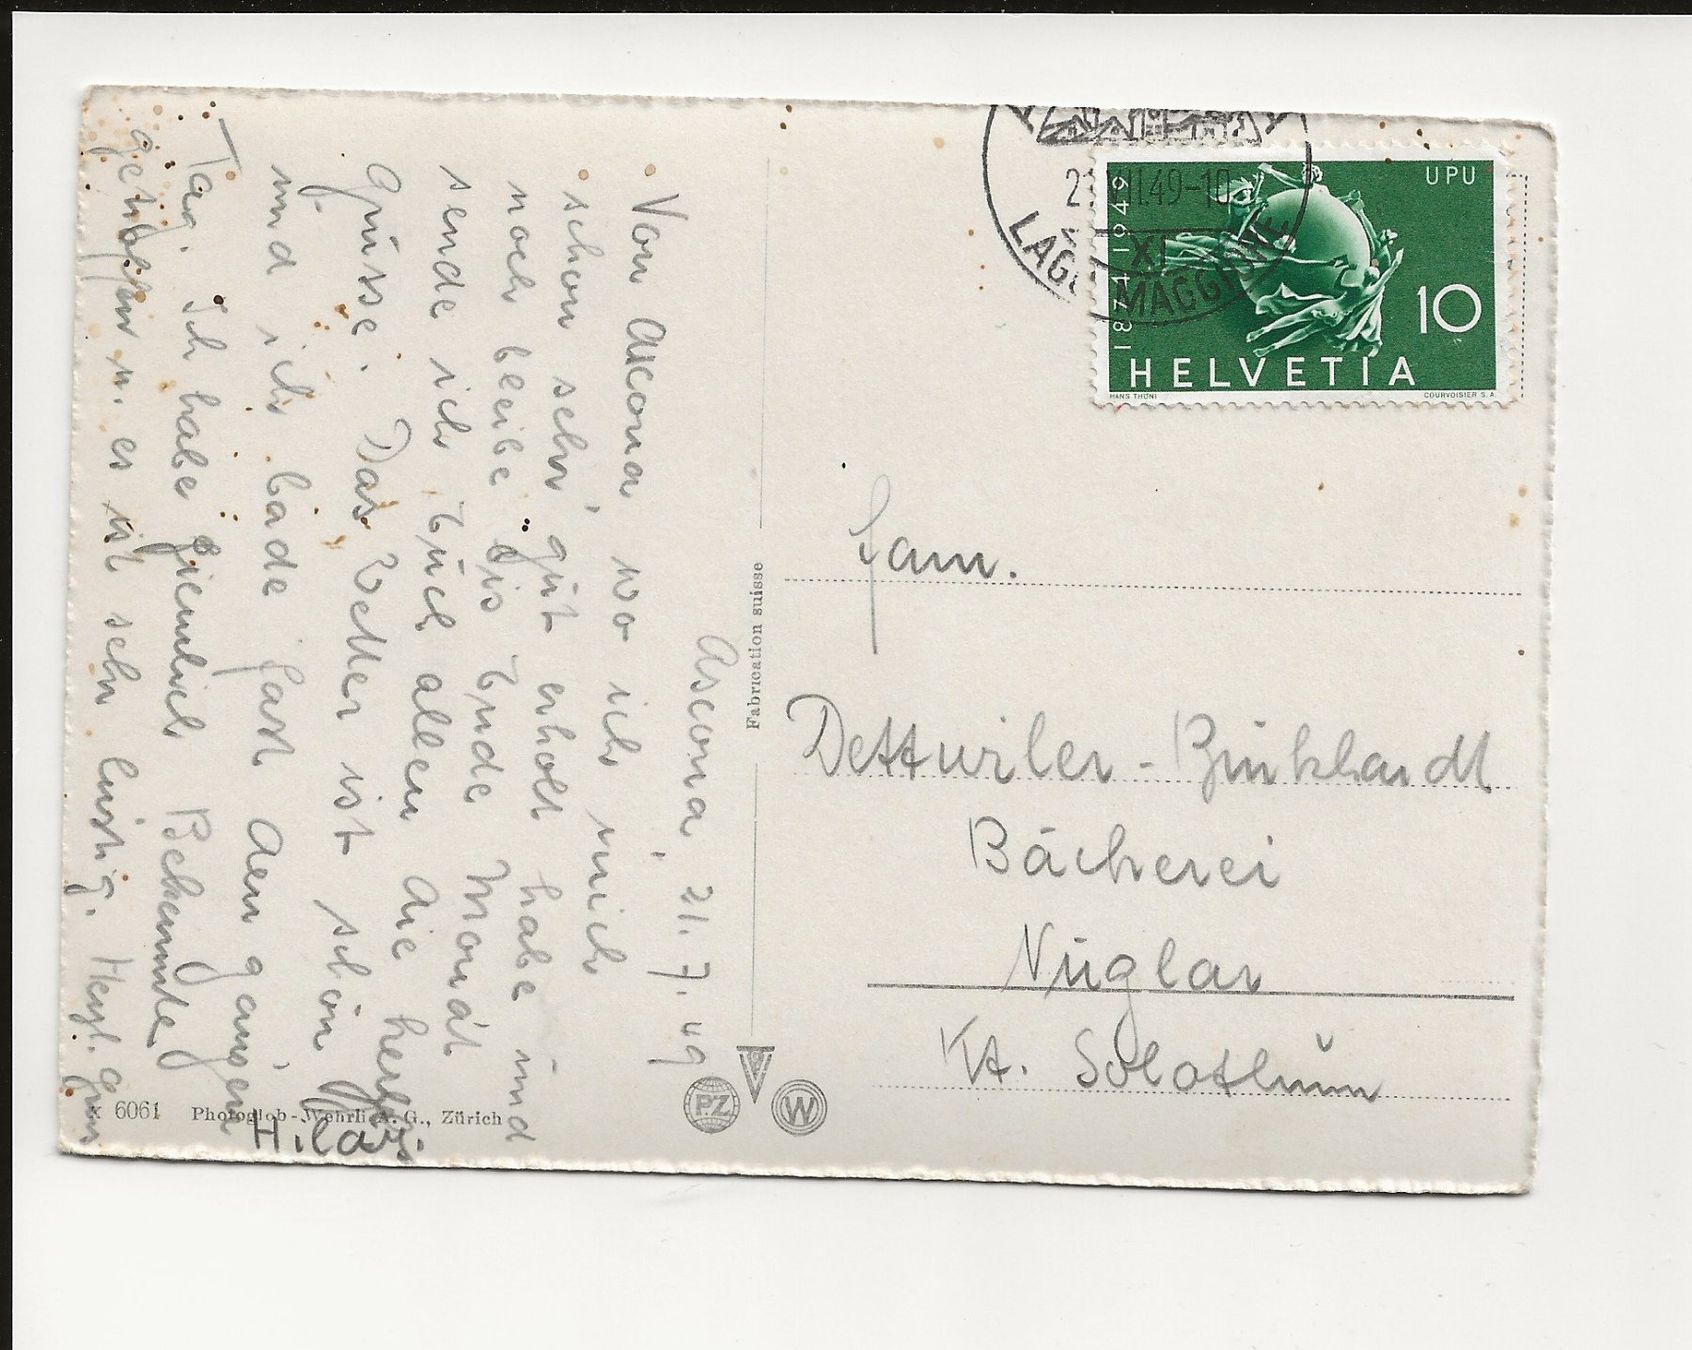 Ascona, 21. 7. 49
Von Ascona, wo ich mich
schon sehr gut erholt habe und
noch bleibe bis Ende Monat
sende ich Euch allen die herzl.
Grüsse. Das Wetter ist schön
und ich bade fast den ganzen
Tag. Ich habe ziemlich Bekannte
getroffen u. es ist sehr lustig. Herzl. Gruss
Hilar.
Fabrication suisse
K 6061 Photoglob-Wehrli A. G., Zürich
PZ
W
LAGO MAGGIORE
VII.49-10
XI
UPU
1874 1949
10
HELVETIA
HANS THÖNI
COURVOISIER S.A.
Fam.
Dettwiler-Burkhardt
Bäckerei
Nuglar
Kt. Solothurn